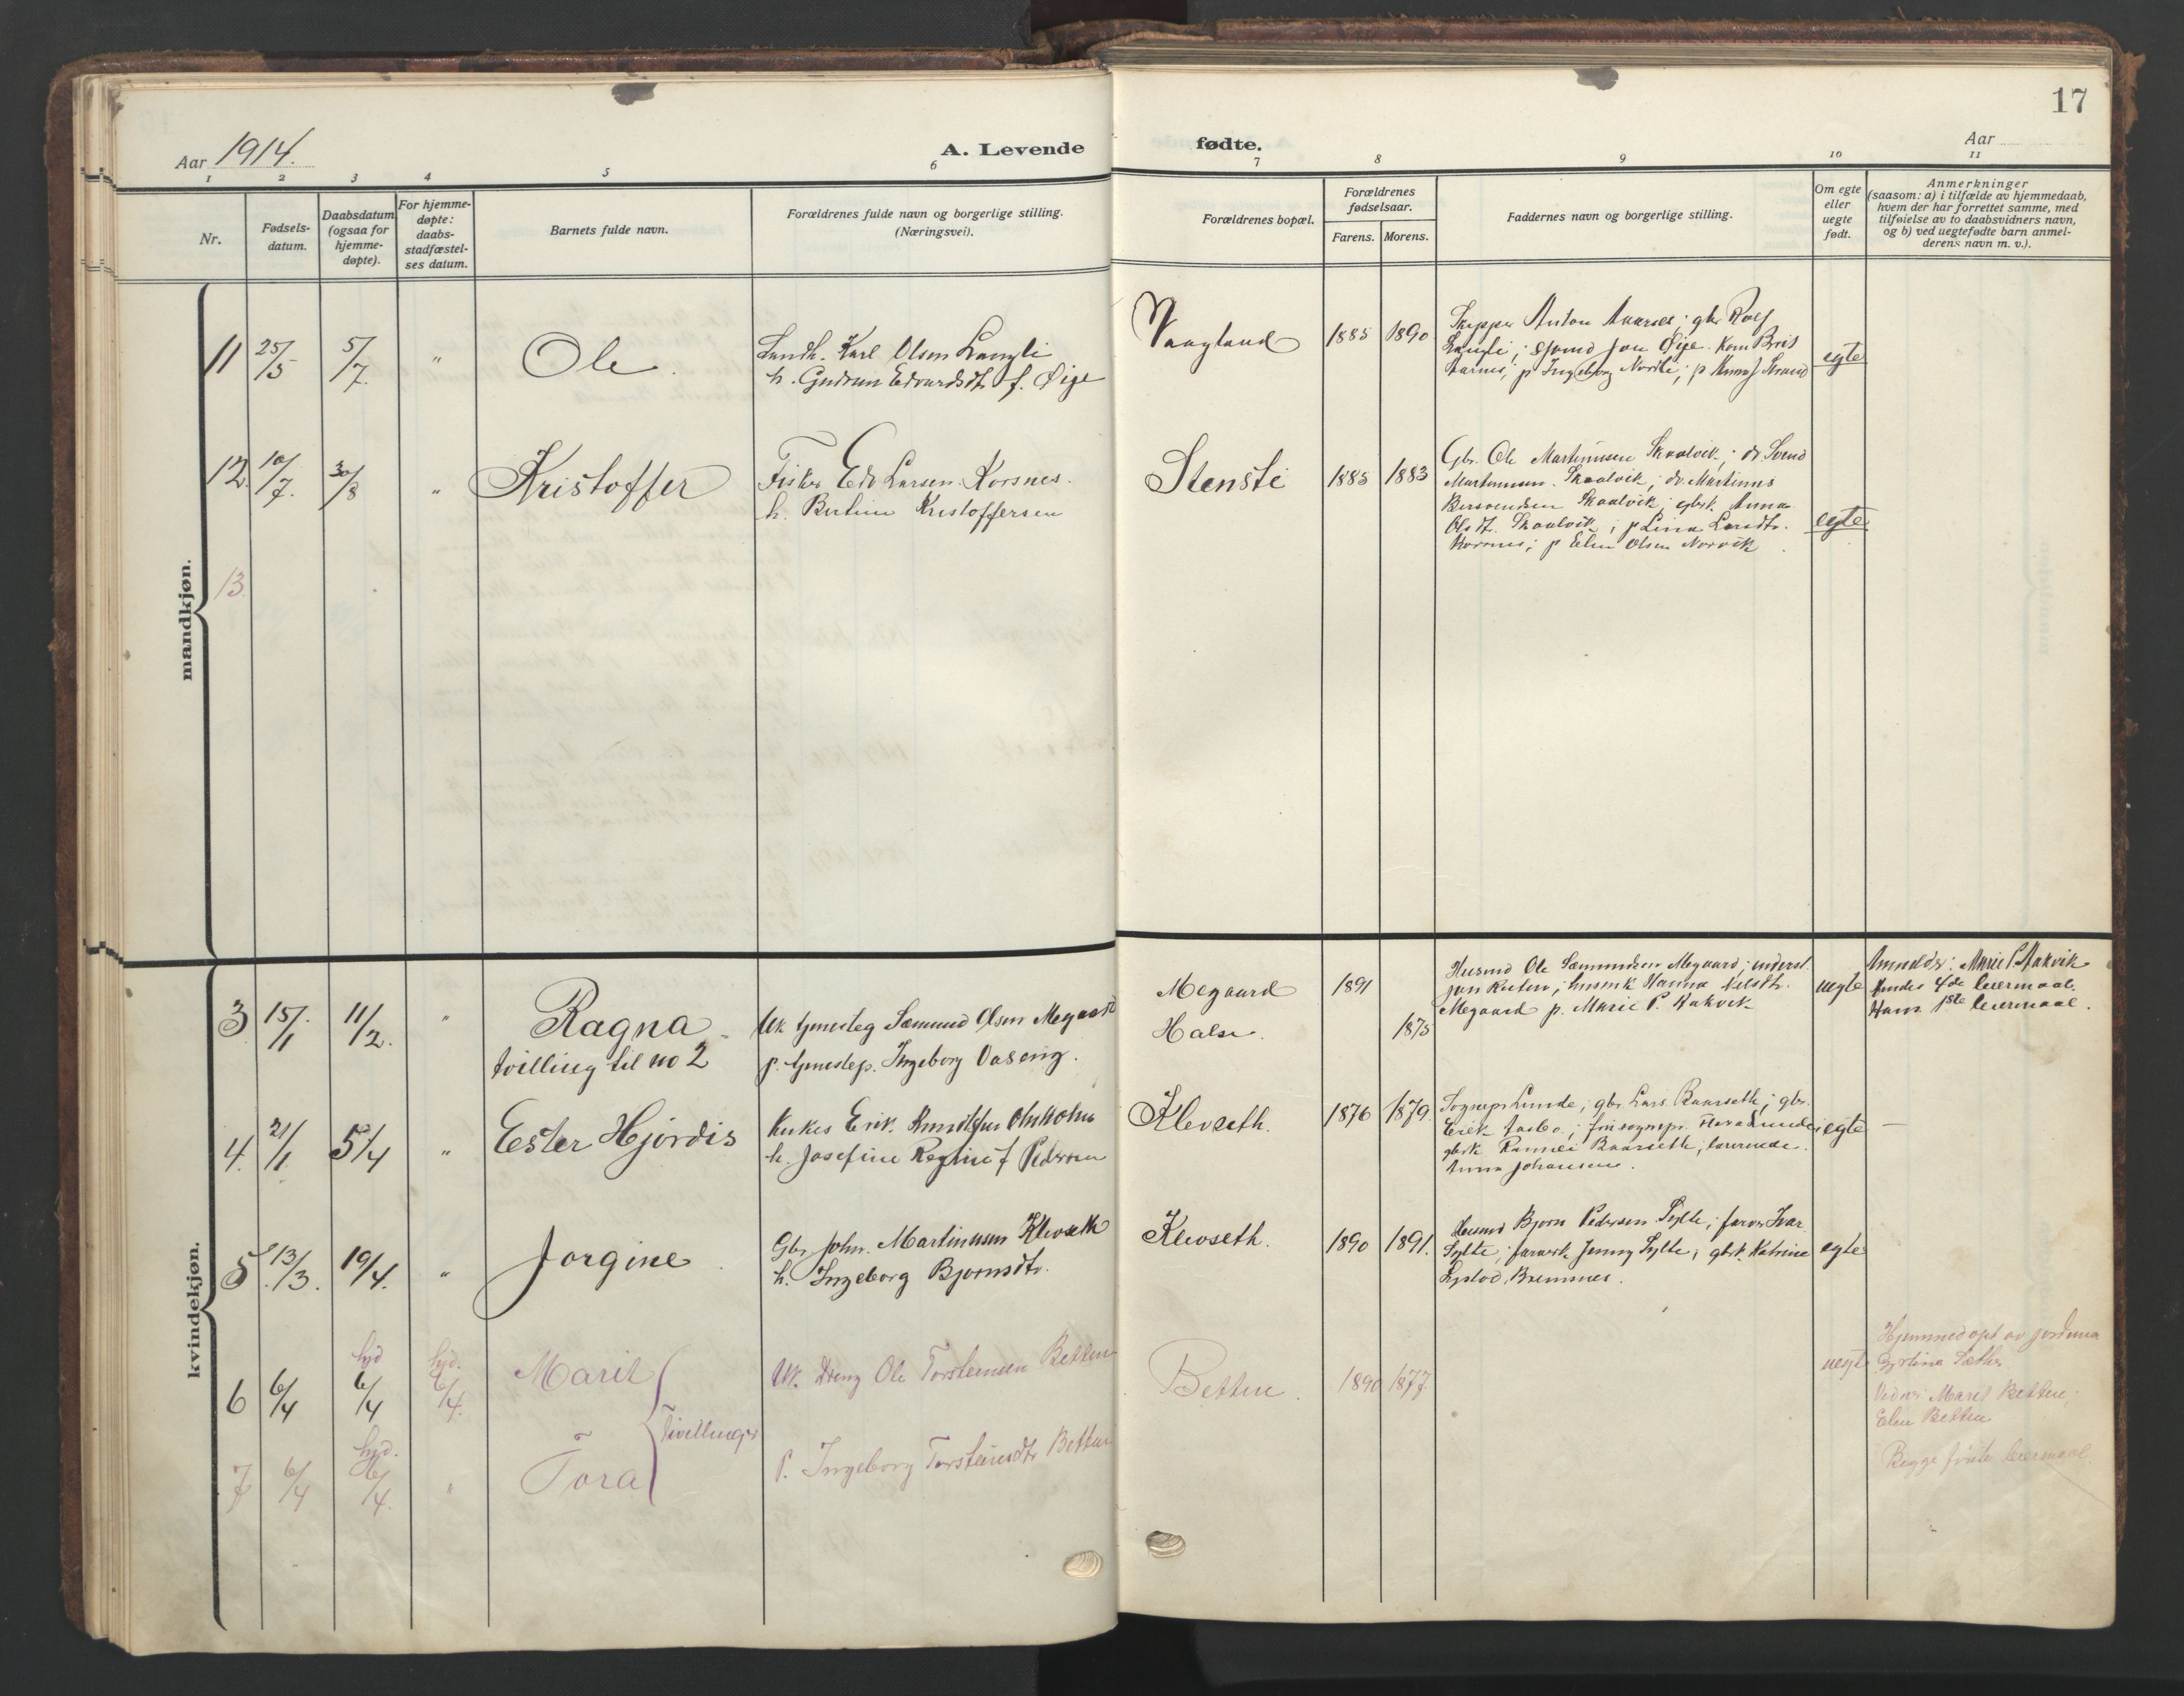 17
Aar 1914.
A. Levende
fødte.
Aar
1 2 3 4 5 6 7 8 9 10 11
Nr.
Fødsels-
datum.
Daabsdatum
(ogsaa for
hjemme-
døpte).
For hjemme-
døpte:
daabs-
stadfæstel-
ses datum.
Barnets fulde navn.
Forældrenes fulde navn og borgerlige stilling.
(Næringsvei).
Forældrenes bopæl.
Forældrenes
fødselsaar.
Farens. Morens.
Faddernes navn og borgerlige stilling.
Om egte
eller
uegte
født.
Anmerkninger
(saasom: a) i tilfælde av hjemmedaab,
hvem der har forrettet samme, med
tilføielse av to daabsvidners navn,
og b) ved uegtefødte barn anmel-
derens navn m. v.).
mandkjøn.
11 25/5 5/7. " Ole.
Landh. Karl Olsen Langli
h. Gudrun Edvardsdt. f. Øige
Vaagland 1885 1890
Skipper Anton Aarnes; gbr Rolf
Langli; Jon Øige
Aarnes; p Ingeborg; p Anna J Strand
egte
12. 10/7. 30/8 " Kristoffer
Fisker Edv Larsen Korsnes.
h. Kristoffersen
Stensti 1885 1883
Gbr. Ole Martinusen Skaalvik; dr. Svend
Martinusen Skaalvik; dr. Martinus
Skaalvik; gbrk Anna
Olsdt. Skaalvik; p Lina Larsdtr.
Korsnes; p Elen Olsen Norvik
egte
13.
kvindekjøn.
3 15/1 11/2. " Ragna
tvilling til no 2
Uk tjenesteg Sæmund Olsen Megaard
p. tjenestep. Ingeborg Vaseng.
Megaard 1891
Halse. 1875
Husmd Ole Sæmundsen Megaard; underst.
husmk Hanna Nilsdtr.
Megaard p. Marie P. Aakvik
uegte
Anmelder: Marie P. Aakvik
Hendes 4de leiermaal.
Hans 1ste leiermaal.
4. 21/1 5/4 " Ester Hjørdis
Erik
h. Josefine Regine f Pedersen
Klevseth. 1876 1879.
Sognepr Lunde; gbr. Lars Baarseth; gbr.
Erik; fru sognepr. Lunde;
gbrk Baarseth; lærerinde
Anna Johansen.
egte —
5 13/3. 19/4. " Jorgine
Gbr John. Martinusen Klevseth
h. Ingeborg Bjørnsdtr.
Klevseth. 1890 1891.
Husmd Bjørn Pedersen Sylte; farver Ivar
Sylte; farverk Jenny Sylte; gbrk. Katrine
Bremsnes.
egte
6 6/4 hjd 6/4 hjd. 6/4. Marit
Uk. Dreng Ole Torsteinsen Betten
Betten. 1890 1877.
uegte
Hjemmedøpt av jordmor
Sæther
Vidner: Marit Betten;
Elen Betten
Tvillinger
7 6/4 hjd. 6/4. " Tora
P. Ingeborg Torsteinsdtr Betten
Begge første leiermaal.